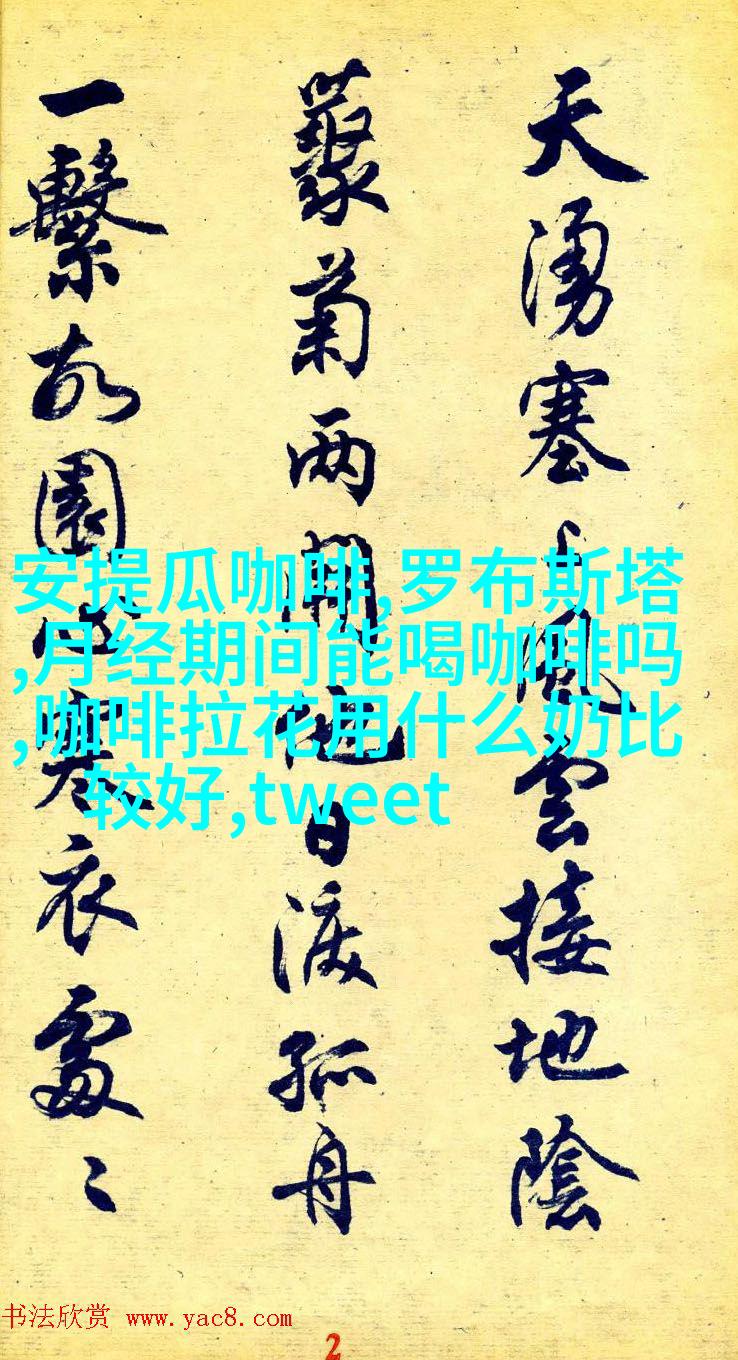 天湧塞上風雲接地陰
藂菊两開他日淚孤舟
一繫故園心寒衣處々
安提瓜咖啡,罗布斯塔
,月经期间能喝咖啡吗
,咖啡拉花用什么奶比
较好,tweet
书法欣赏 www.yac8.com
2